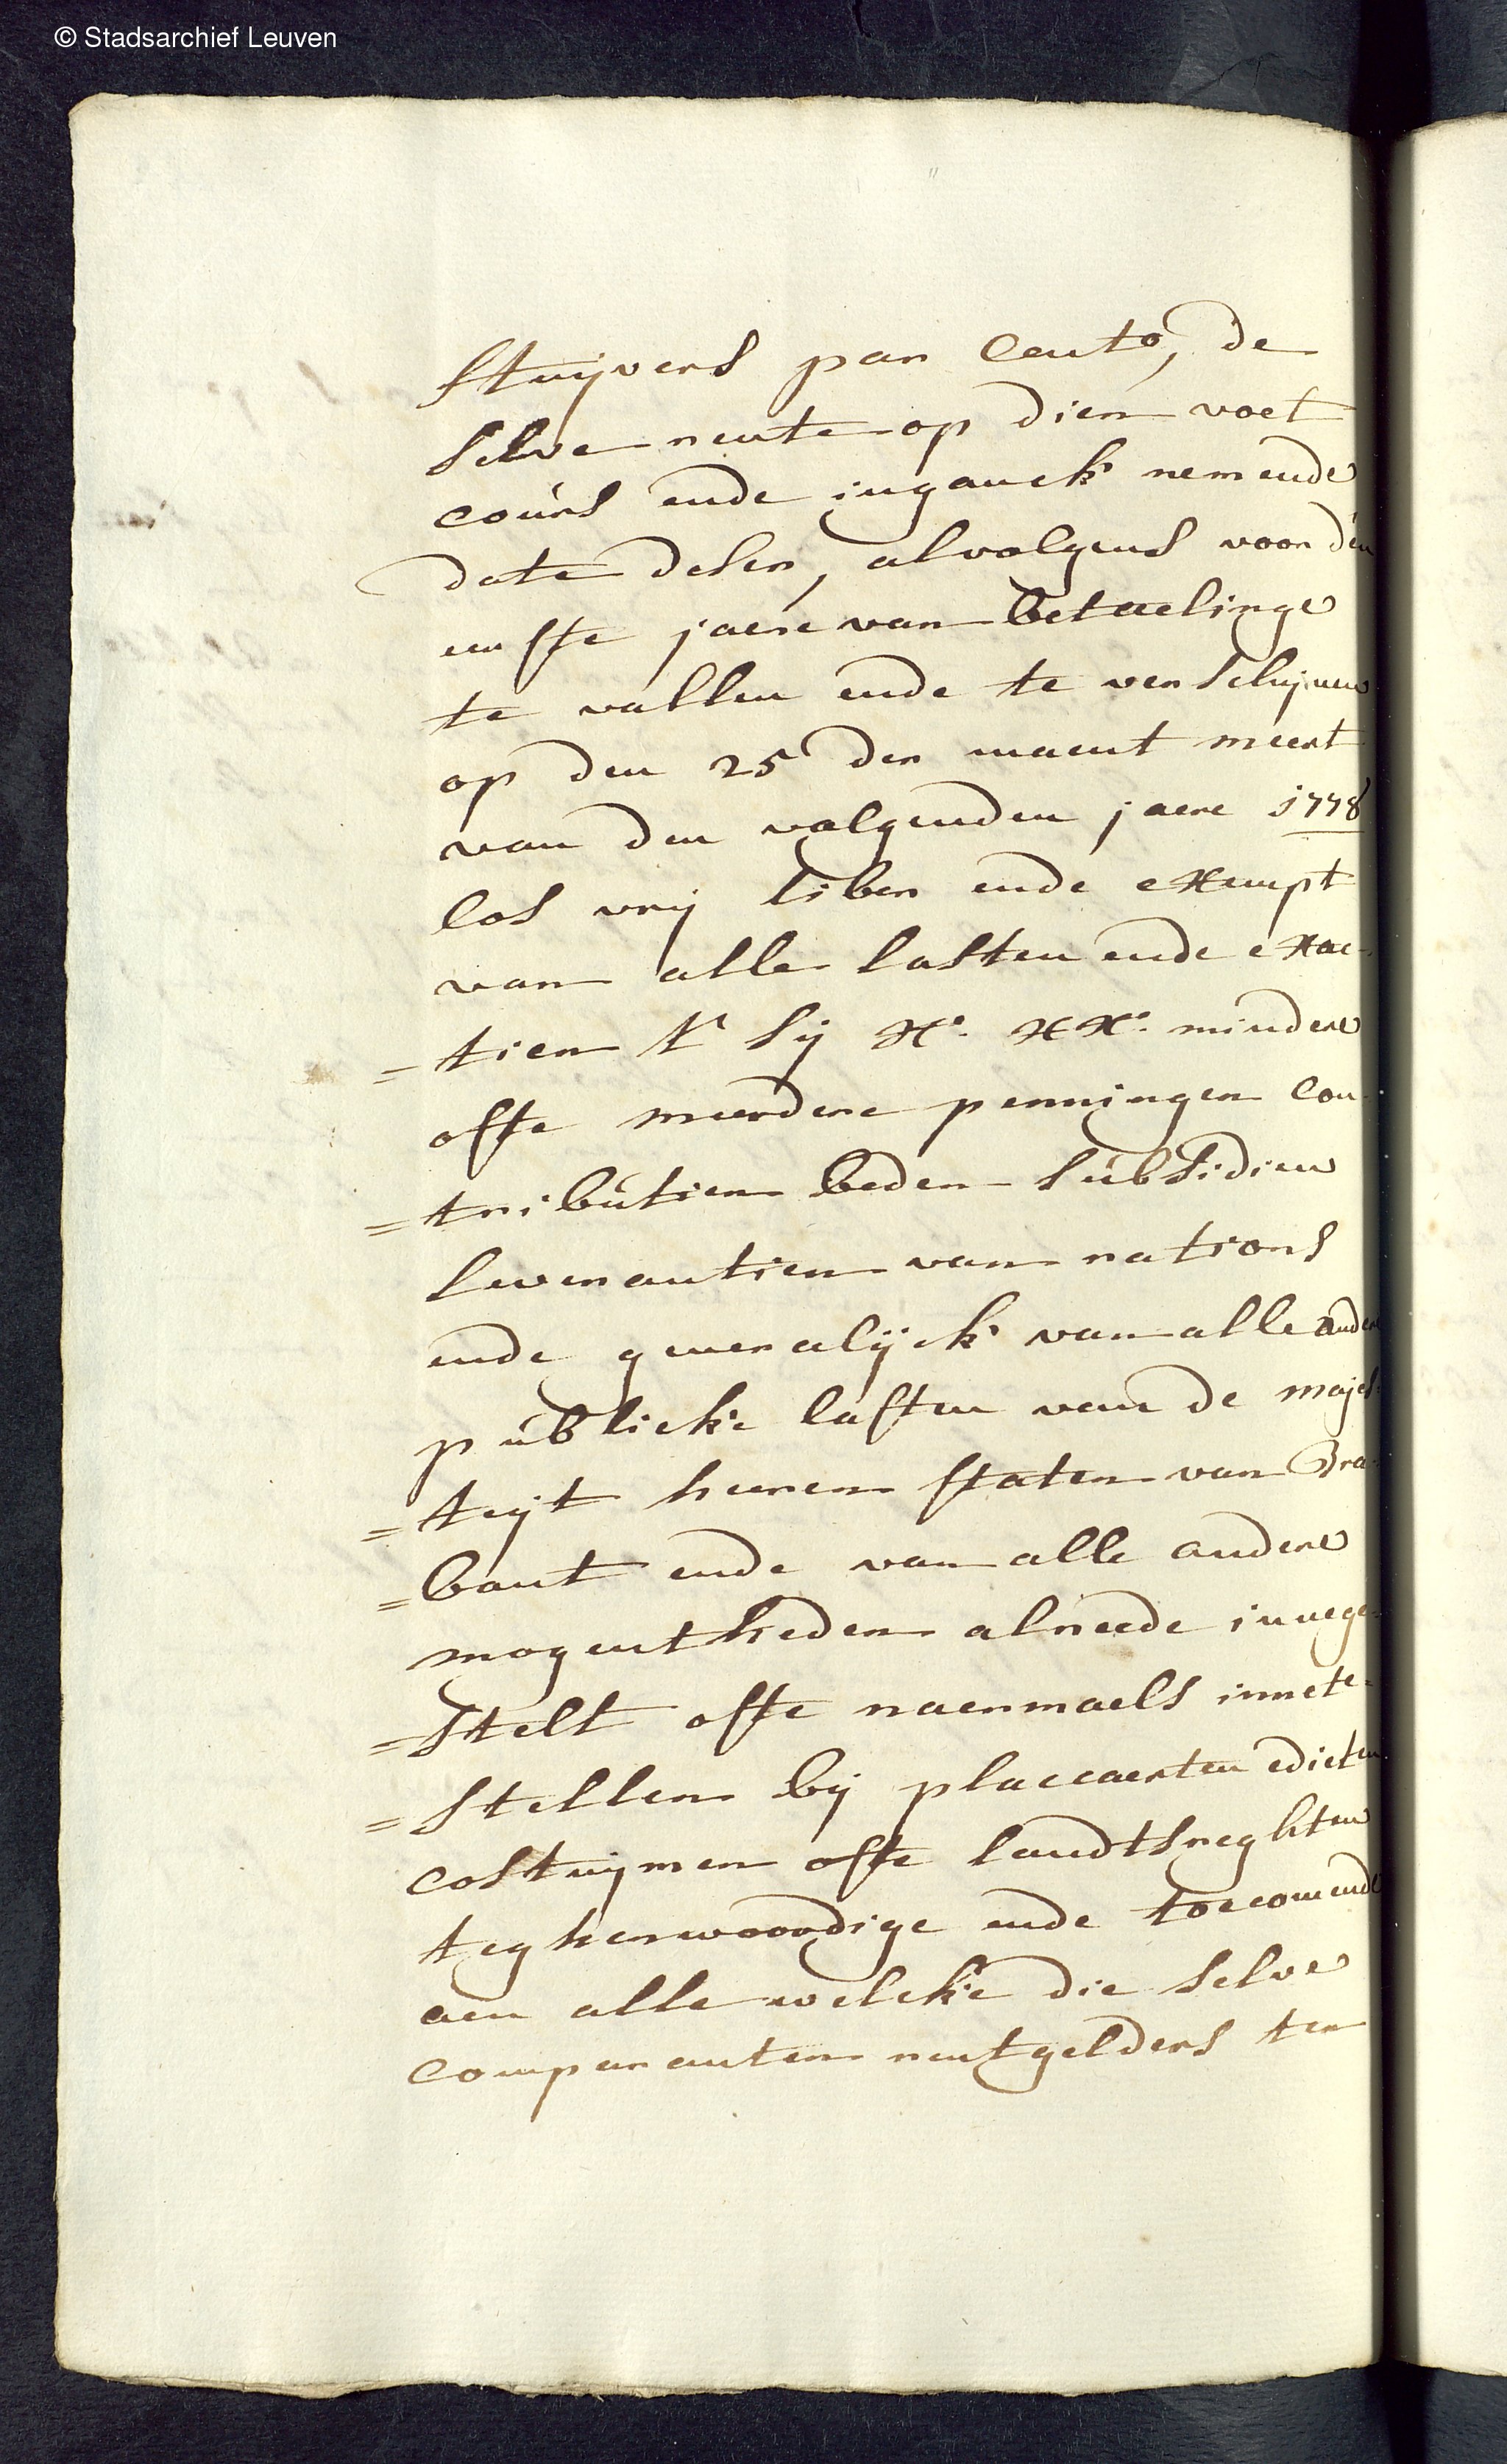 © Stadsarchief Leuven
stuijvers per cento, de
selve rente op dien voet
coúrs ende inganck nemende
date deser, alvolgens voor den
eerste jaere van betaelinge
te vallen ende te verschijnen
op den 25 der maent meert
van den volgenden jaere 1778
los vrij liber ende exempt
van alle lasten ende exac-
=tien 't sij xe. xxe. mindere
ofte meerdere penningen con-
=tribútien beden súbsidien
leverantien van rations
ende generalijck van alle andere
públicke lasten van de majes-
=teijt heeren staten van Bra-
=bant ende van alle andere
mogentheden alreede innege-
=stelt ofte naermaels innete-
=stellen bij placcaerten edicten
costuijmen ofte landtsreghten
teghenwoordige ende toecomende
aen alle welcke die selve
comparanten rentgelders ter